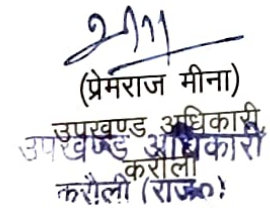 (प्रेमराज मीना)
उपखण्ड अधिकारी
उपखण्ड अधिकारी
करौली
करौली (राज०)